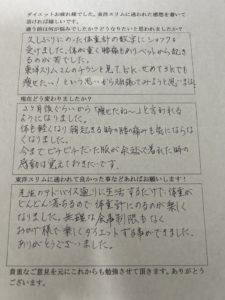 ダイエットお疲れ様でした。東洋スリムに通われた感想を書いて
頂ければ嬉しいです。
通う前は何が悩みでしたか?どうなりたいと思われましたか?
久しぶりにのった体重計の数字にショックを
受けました。体が重く腰痛もあり、ベッドから起き
るのが苦でした。
東洋スリムさんのチラシを見て、
痩せたい。という思いから頑張ってみようと思いまし
た
現在どう変わりましたか?
2ヶ月後ぐらいから「痩せたね〜」と言われる
ようになりました。
体も軽くなり朝起きる時の腰の痛みも気にならな
くなりました。
今までピチピチだった服が余裕で着れた時の
感動は覚えておきたいです。
東洋スリムに通われて良かった事などあればお願いします!
先生のアドバイス通りに生活するだけで、体重が
どんどん落ちるので体重計にのるのが楽しく
なりました。無理な食事制限もなく
おかげ様で楽しくダイエットする事ができました。
ありがとうございました。
貴重なご意見を元にこれからも勉強させて頂きます。ありがとう
ございます。